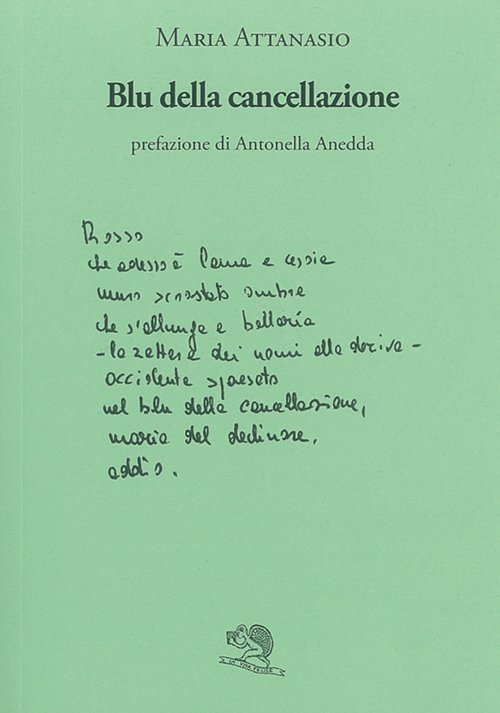 MARIA ATTANASIO
Blu della cancellazione
prefazione di Antonella Anedda
Rosso
che adesso è lama e cesoia
muro scrostato ombre
che s'allunga e battaria
- la zattera dei nomi alla deriva -
occidente spaesato
nel blu della cancellazione,
maria del declinare,
addio.
LA VITA FELICE